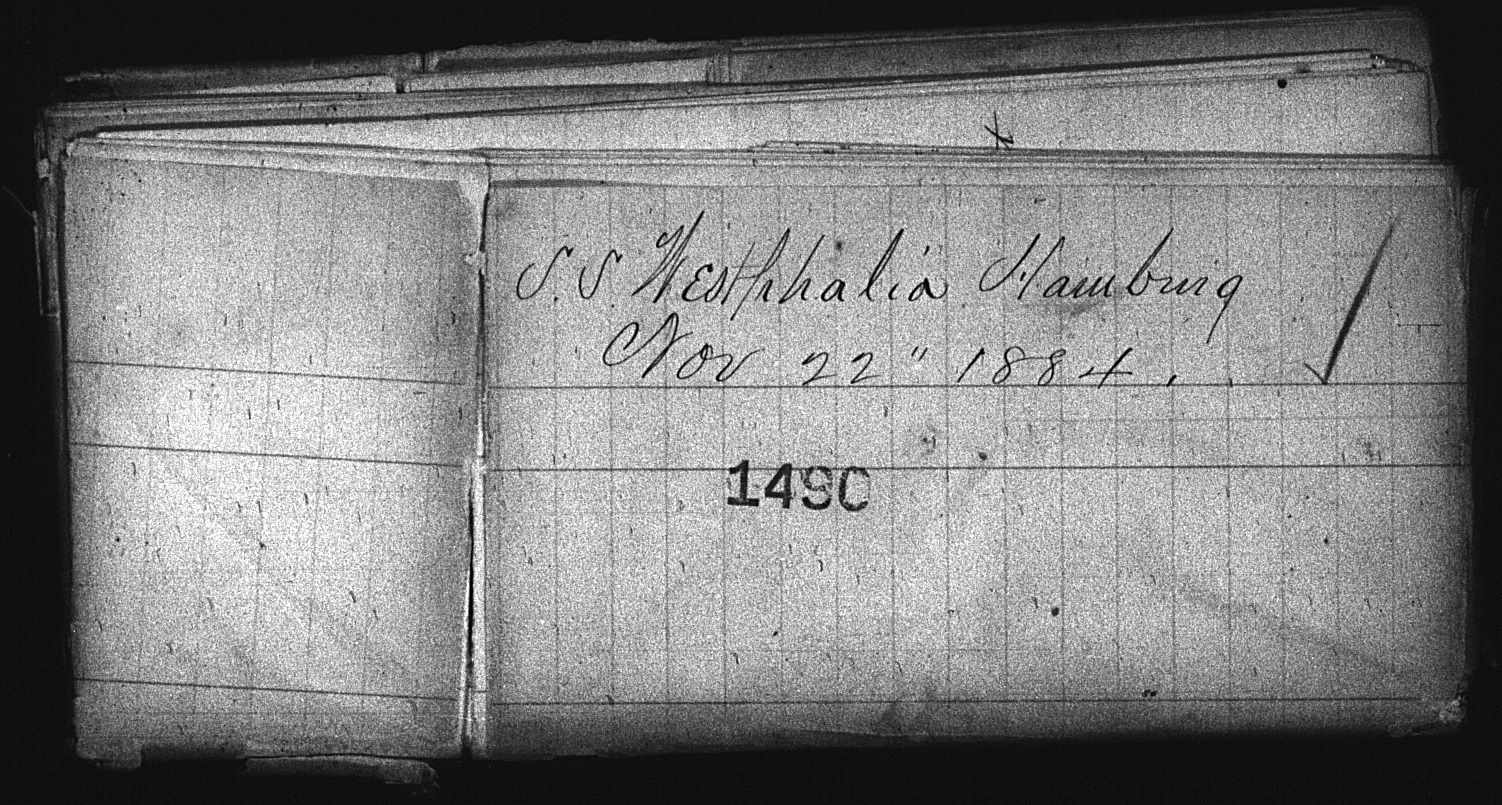 S.S. Westphalia Hamburg
Nov 22" 1884.
1490